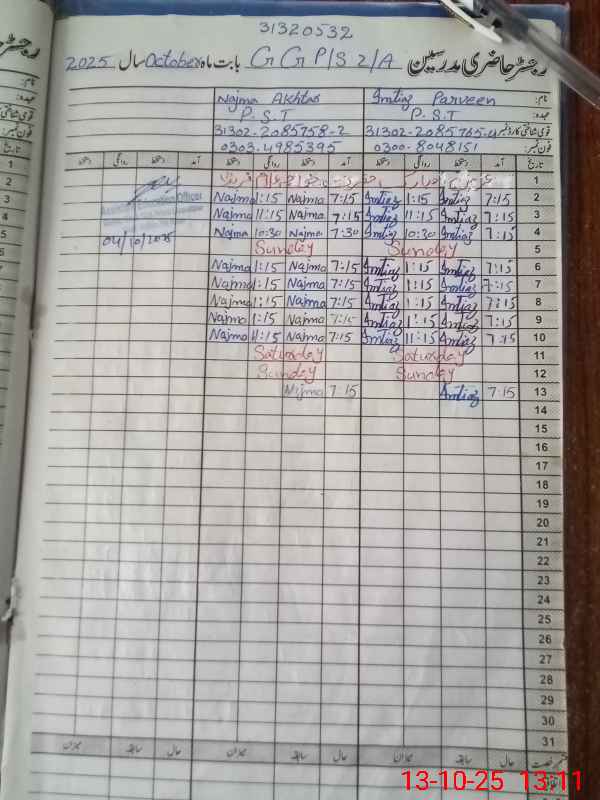 31320532
رجسٹر حاضری مدرسین G G P/S 2/A بابت ماہ October سال 2025
نام: Imtiaz Parveen Najma Akhtar
عہدہ: P.S.T P.S.T
قومی شناختی کارڈ نمبر: 31302-2085765-4 31302-2085758-2
فون نمبر: 0300-8048151 0303-4985395
تاریخ آمد دستخط روانگی دستخط آمد دستخط روانگی دستخط آمد دستخط روانگی دستخط
1
2 7:15 Imtiaz 1:15 Imtiaz 7:15 Najma 1:15 Najma
3 7:15 Imtiaz 11:15 Imtiaz 7:15 Najma 11:15 Najma
4 7:15 Imtiaz 10:30 Imtiaz 7:30 Najma 10:30 Najma
04/10/2025
5 Sunday Sunday
6 7:15 Imtiaz 1:15 Imtiaz 7:15 Najma 1:15 Najma
7 7:15 Imtiaz 1:15 Imtiaz 7:15 Najma 1:15 Najma
8 7:15 Imtiaz 1:15 Imtiaz 7:15 Najma 1:15 Najma
9 7:15 Imtiaz 1:15 Imtiaz 7:15 Najma 1:15 Najma
10 7:15 Imtiaz 11:15 Imtiaz 7:15 Najma 11:15 Najma
11 Saturday Saturday
12 Sunday Sunday
13 7:15 Imtiaz 7:15 Najma
14
15
16
17
18
19
20
21
22
23
24
25
26
27
28
29
30
31
حال سابقہ میزان حال سابقہ میزان حال سابقہ میزان
13-10-25 13:11